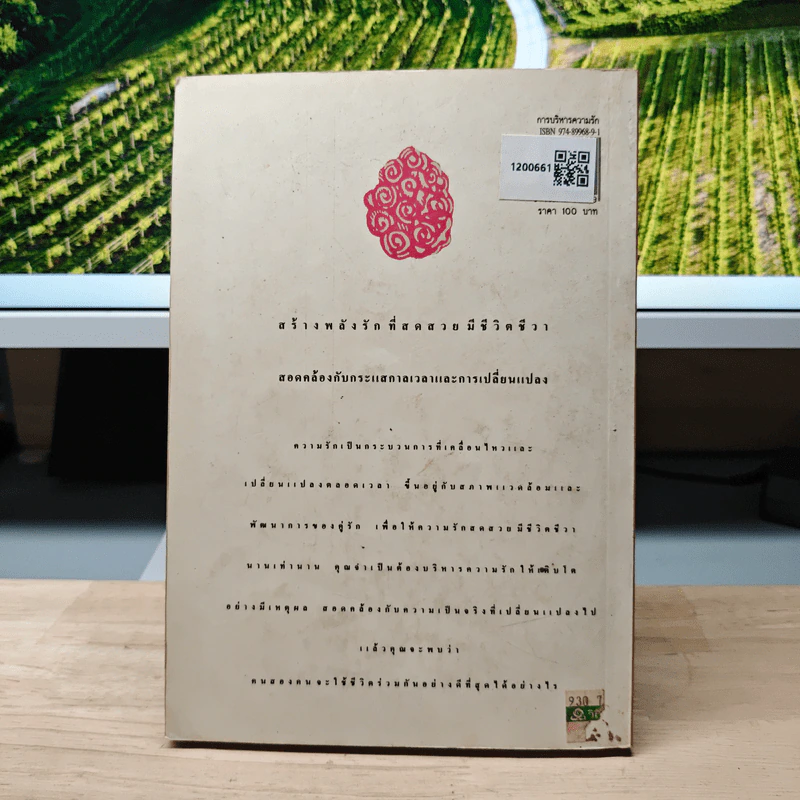 การบริหารความรัก
ISBN 974-89968-9-1
1200661
ราคา 100 บาท
สร้างพลังรักที่สดสวย มีชีวิตชีวา
สอดคล้องกับกระแสกาลเวลาและการเปลี่ยนแปลง
ความรักเป็นกระบวนการที่เคลื่อนไหวและ
เปลี่ยนแปลงตลอดเวลา ขึ้นอยู่กับสภาพแวดล้อมและ
พัฒนาการของคู่รัก เพื่อให้ความรักสดสวย มีชีวิตชีวา
นานเท่านาน คุณจำเป็นต้องบริหารความรักให้เติบโต
อย่างมีเหตุผล สอดคล้องกับความเป็นจริงที่เปลี่ยนแปลงไป
แล้วคุณจะพบว่า
คนสองคนจะใช้ชีวิตร่วมกันอย่างดีที่สุดได้อย่างไร
930 7